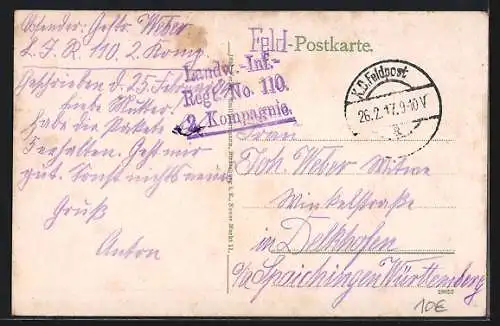 Absender: Gefr. Weber
L. I. R. 110. 2. Komp.
Geschrieben d. 25. Februar
Liebe Mutter!
Habe die Pakete
erhalten. Geht mir
gut. Sonst nichts neues
Gruß
Anton
Feld-Postkarte.
Landw.-Inf.-
Regt. No. 110.
2. Kompagnie.
K.D. Feldpost
26.2.17. 9-10 V
Frau
Joh. Weber Witwe
Winkelstraße
in Delkhofen
O/A Spaichingen Württemberg
10€